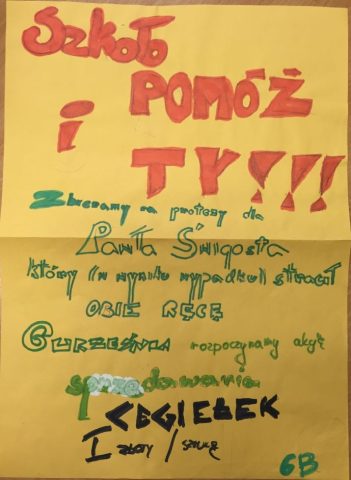 Szkoło
POMÓŻ
i
TY!!!
Zbieramy na protezy dla
Pawła Śnigosta
który (w wyniku wypadku) stracił
OBIE RĘCĘ
6 WRZEŚNIA rozpoczynamy akcję
sprzedawania
CEGIEŁEK
1 złoty / sztukę
6B